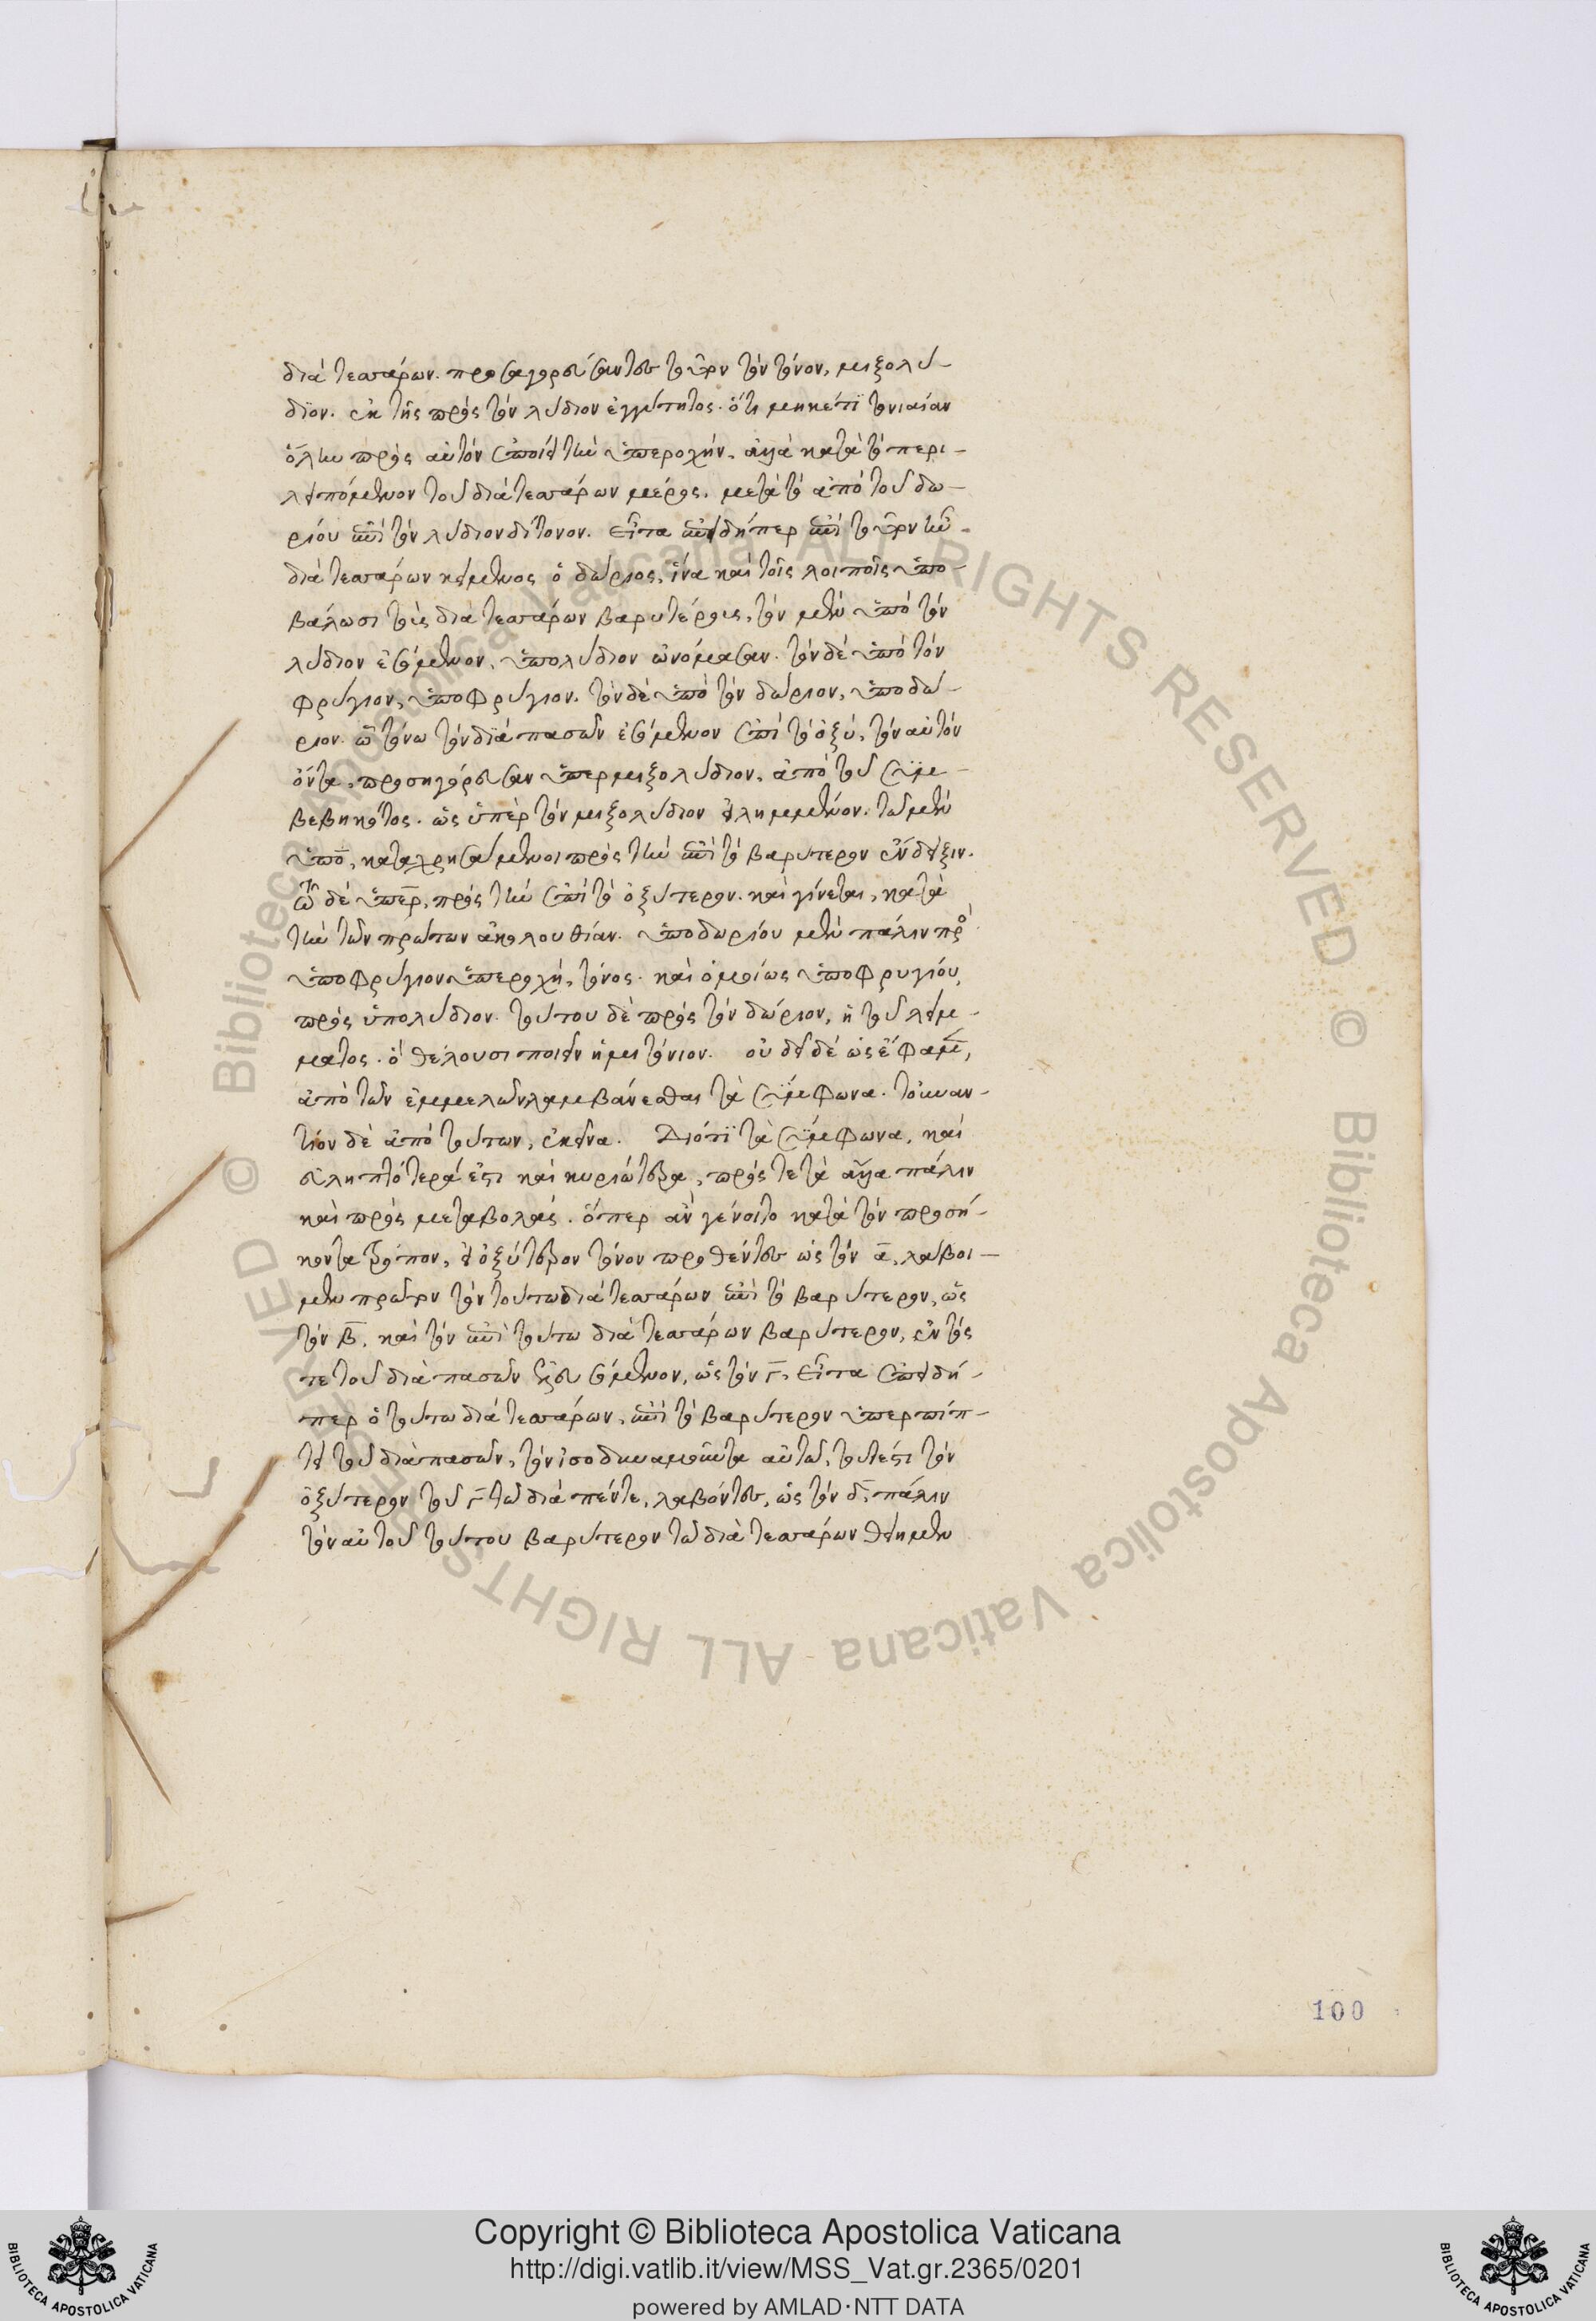 διὰ τεσσάρων. προσαγορεύσαντες τοῦτον τὸν τόνον, μιξολύ-
διον. ἐκ τῆς πρὸς τὸν λύδιον ἐγγύτητος. ὅτι μηκέτι τονιαίαν
ὅλην πρὸς αὐτὸν ἐποίει τὴν ὑπεροχήν. ἀλλὰ κατὰ τὸ περι-
λειπόμενον τοῦ διὰ τεσσάρων μέρος. μετὰ τὸ ἀπὸ τοῦ δω-
ρίου ἐπὶ τὸν λύδιον δίτονον. εἶτα ἐπειδήπερ ἐπὶ τοῦτον τῶ
διὰ τεσσάρων κείμενος ὁ δώριος, ἵνα καὶ τοῖς λοιποῖς ὑπο-
βάλωσι τοὺς διὰ τεσσάρων βαρυτέρους, τὸν μὲν ὑπὸ τὸν
λύδιον ἐσόμενον, ὑπολύδιον ὠνόμασαν. τὸν δὲ ὑπὸ τὸν
φρύγιον, ὑποφρύγιον. τὸν δὲ ὑπὸ τὸν δώριον, ὑποδώ-
ριον. ᾧ τόνω τὸν διὰ πασῶν ἐσόμενον ἐπὶ τὸ ὀξύ, τὸν αὐτὸν
ὄντα, προσηγόρευσαν ὑπερμιξολύδιον, ἀπὸ τοῦ συμ-
βεβηκότος. ὡς ὑπὲρ τὸν μιξολύδιον εἰλημμένον. τῶ μὲν
ὑπο, καταχρησάμενοι πρὸς τὴν ἐπὶ τὸ βαρύτερον ἔνδειξιν.
τῶ δὲ ὑπερ, πρὸς τὴν ἐπὶ τὸ ὀξύτερον. καὶ γίνεται, κατὰ
τὴν τῶν πρώτων ἀκολουθίαν. ὑποδωρίου μὲν πάλιν πρὸς
ὑποφρύγιον ὑπεροχή, τόνος. καὶ ὁμοίως ὑποφρυγίου,
πρὸς ὑπολύδιον. τούτου δὲ πρὸς τὸν δώριον, ἡ τοῦ λείμ-
ματος. ὃ θέλουσι ποιεῖν ἡμιτόνιον. οὐ δεῖ δὲ ὡς ἔφαμεν,
ἀπὸ τῶν ἐμμελῶν λαμβάνεσθαι τὰ σύμφωνα. τοὐναν-
τίον δὲ ἀπὸ τούτων, ἐκεῖνα. Διότι τὰ σύμφωνα, καὶ
εὐληπτότερά ἐστι καὶ κυριώτερα, πρός τε τὰ ἄλλα πάλιν
καὶ πρὸς μεταβολάς. ὅπερ ἂν γένοιτο κατὰ τὸν προσή-
κοντα τρόπον, εἰ ὀξύτερον τόνον προθέντες ὡς τὸν α, λάβοι-
μεν πρῶτον τὸν τούτω διὰ τεσσάρων ἐπὶ τὸ βαρύτερον, ὡς
τὸν β. καὶ τὸν ἐπὶ τούτω διὰ τεσσάρων βαρύτερον, ἐντός
τε τοῦ διὰ πασῶν ἐσόμενον, ὡς τὸν γ. εἶτα ἐπειδή-
περ ὁ τούτω διὰ τεσσάρων, ἐπὶ τὸ βαρύτερον ὑπερπίπ-
τει τοῦ διὰ πασῶν, τὸν ἰσοδυναμοῦντα αὐτῶ, τουτέστι τὸν
ὀξύτερον τοῦ γ τῶ διὰ πέντε, λαβόντες, ὡς τὸν δ, πάλιν
τὸν αὐτοῦ τούτου βαρύτερον τῶ διὰ τεσσάρων θείημεν
100
Copyright © Biblioteca Apostolica Vaticana
http://digi.vatlib.it/view/MSS_Vat.gr.2365/0201
powered by AMLAD·NTT DATA